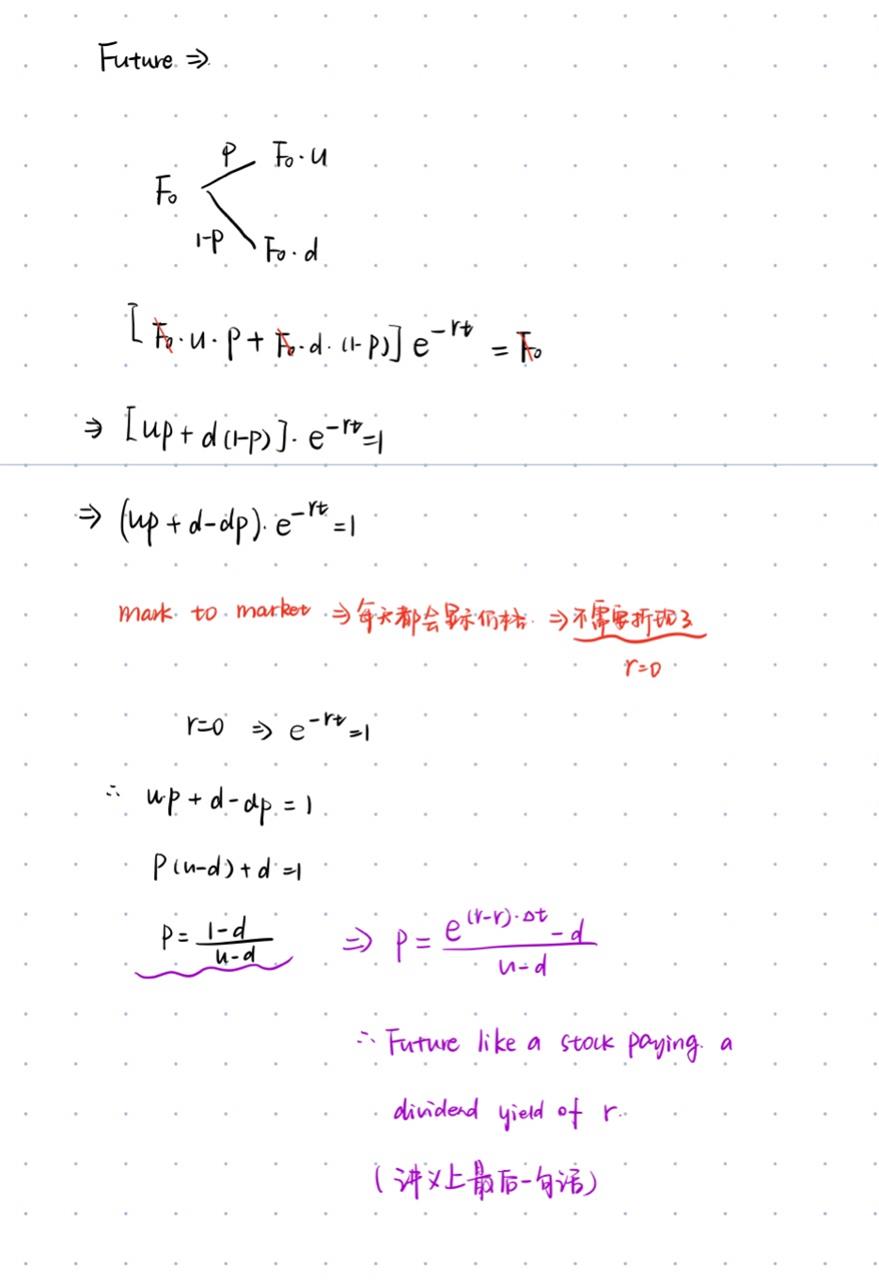 Future ⇒
P F₀·u
F₀
1-P F₀·d
[F₀·u·P + F₀·d·(1-P)] e^{-rt} = F₀
⇒ [up + d(1-P)]· e^{-rt} = 1
⇒ (up + d-dp)· e^{-rt} = 1
mark to market ⇒ 每天都会显示价格 ⇒ 不需要折现了
r=0
r=0 ⇒ e^{-rt} = 1
∴ up + d-dp = 1
P(u-d) + d = 1
P = \frac{1-d}{u-d} ⇒ P = \frac{e^{(r-r)·Δt} - d}{u-d}
∴ Future like a stock paying a
dividend yield of r.
(讲义上最后一句话)